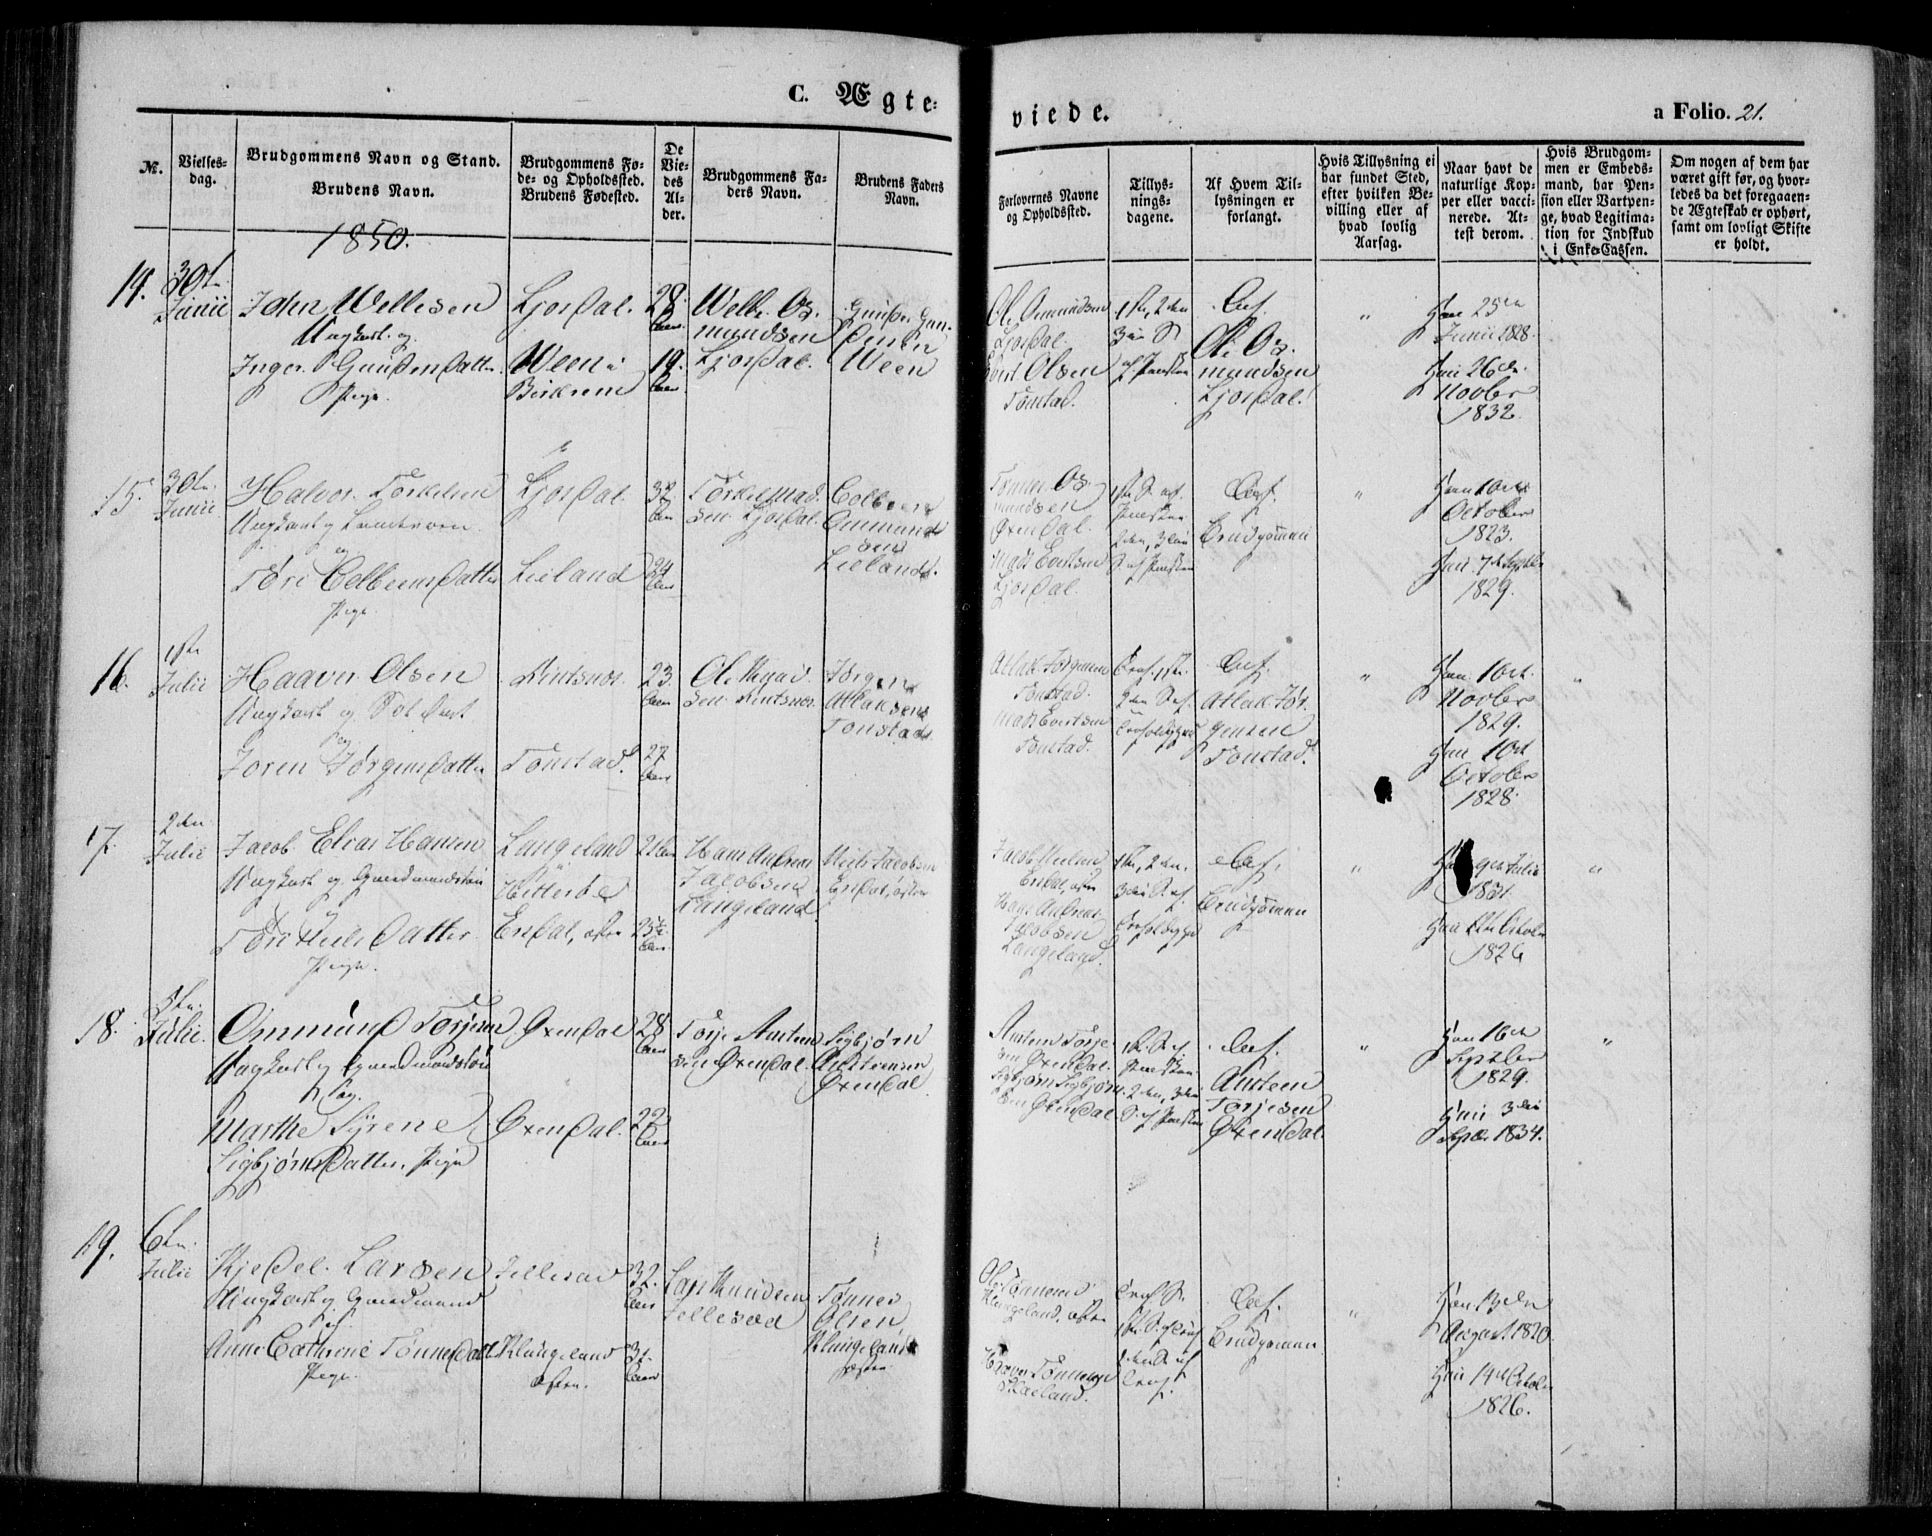 C. Ægte=
viede.
a Folio. 21.
№.
Vielses-
dag.
Brudgommens Navn og Stand.
Brudens Navn.
Brudgommens Fø-
de- og Opholdssted.
Brudens Fødested.
De
Vie-
des
Al-
der.
Brudgommens Fa-
ders Navn.
Brudens Faders
Navn.
Forlovernes Navne
og Opholdssted.
Tillys-
nings-
dagene.
Af Hvem Til-
lysningen er
forlangt.
Hvis Tillysning ei
har fundet Sted,
efter hvilken Be-
villing eller af
hvad lovlig
Aarsag.
Naar havt de
naturlige Kop-
per eller vacci-
nerede. At-
test derom.
Hvis Brudgom-
men er Embeds-
mand, har Pen-
sion eller Vartpen-
ge, hvad Legitima-
tion for Indskud
i Enke-Cassen.
Om nogen af dem har
været gift før, og hvor-
ledes da det foregaaen-
de Ægteskab er ophørt,
samt om lovligt Skifte
er holdt.
1850.
14.
30te
Junii
John Wellesen
Ungkarl og
Inger Gundersdatter
Pige.
Ljosdal.
Ween i
Birkrem
28
Aar.
19
Aar
Welle Os-
mundsen
Ljosdal.
Gunder Gun-
dersen
Ween
Ole Osmundsen
Ljosdal.
Evert Olsen
Tonstad.
1ste, 2den
3die S.
Ole Os-
mundsen
Ljosdal.
Han 25de
Junii 1828.
Hun 26de
Novbr
1832.
15.
30te
Junii
Halvor Torkelsen
Ungkarl og
og
Tøri Colbeinsdatter
Pige.
Ljosdal.
Lieland
24
Aar
Torkel Mad-
sen Ljosdal.
Colbein
Ommund-
sen
Lieland.
Tønnes Os-
mundsen
Øxendal.
Mads Evertsen
Ljosdal.
2den, 3die
Brudgommen
Han 10de
October
1823.
Hun 7de Septbr
1829.
16.
1ste
Julii
Haaver Olsen
Ungkarl og
og
Joren Jørgensdatter
Rintsnos.
Tonstad.
23
Aar
27
Aar
Ole
sen Rintsnos.
Jørgen
Atlaksen
Tonstad.
Atlak Jørgensen
Tonstad.
Mads Evertsen
Tonstad.
2den S. af
Atlak Jør-
gensen
Tonstad.
Han 10de
Novbr
1829.
Hun 10de
October
1828.
17.
2den
Julii
Jacob Elias Hansen
Ungkarl og Gaardmandssøn
Tøri Nielsdatter
Pige.
Langeland
i
Hitterøe
Endal, østre
Hans Andreas
Jacobsen
Langeland
Niels Jacobsen
Endal, østre
Jacob Nielsen
Endal, østre
Hans Andreas
Jacobsen
Langeland.
1ste, 2den,
3die S. af
Brudgommen
Julii
October
1826
18.
Julii.
Ommund Torjesen
Ungkarl og Gaardmandssøn
og.
Marthe Syrene
Sigbjørnsdatter. Pige
Øxendal
Øxendal.
28
Aar
22
Aar
Torje Austen-
sen Øxendal.
Sigbjørn
Austensen
Øxendal
Austen Torje-
sen Øxendal.
Sigbjørn Sigbjørn-
sen Øxendal.
2den, 3die
Austen
Torjesen
Øxendal.
Han 16de
Septbr
1829.
Hun 3die
Septbr. 1834.
19.
6te
Julii
Kjedel Larsen
Ungkarl og Gaardmand
og
Anne Cathrine Tønnesdatt.
Pige.
Jellesad
Klungeland
østre.
32.
Aar
31.
Aar
Lars Knudsen
Jellesad
Tønnes
Olsen
Klungeland
østre
Ole Tønnesen
Klungeland, østre
Haaver Tønnesen
Skaeland.
Brudgommen
Han 13de
August 1820.
Hun 14de October
1826.